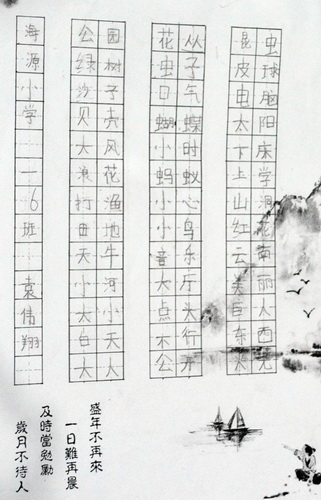 海源小学 一一6班 袁倩翔
公园
绿树
沙子
贝壳
大风
浪花
打渔
田地
天牛
小河
大小
白天
大人
花丛
虫子
日气
蝴蝶
小时
蚂蚁
小心
小鸟
音乐
大厅
点头
不行
公开
昆虫
皮球
电脑
太阳
下床
上学
山洞
红花
云南
美丽
巨人
东西
盛年不再來
一日難再晨
及時當勉勵
歲月不待人